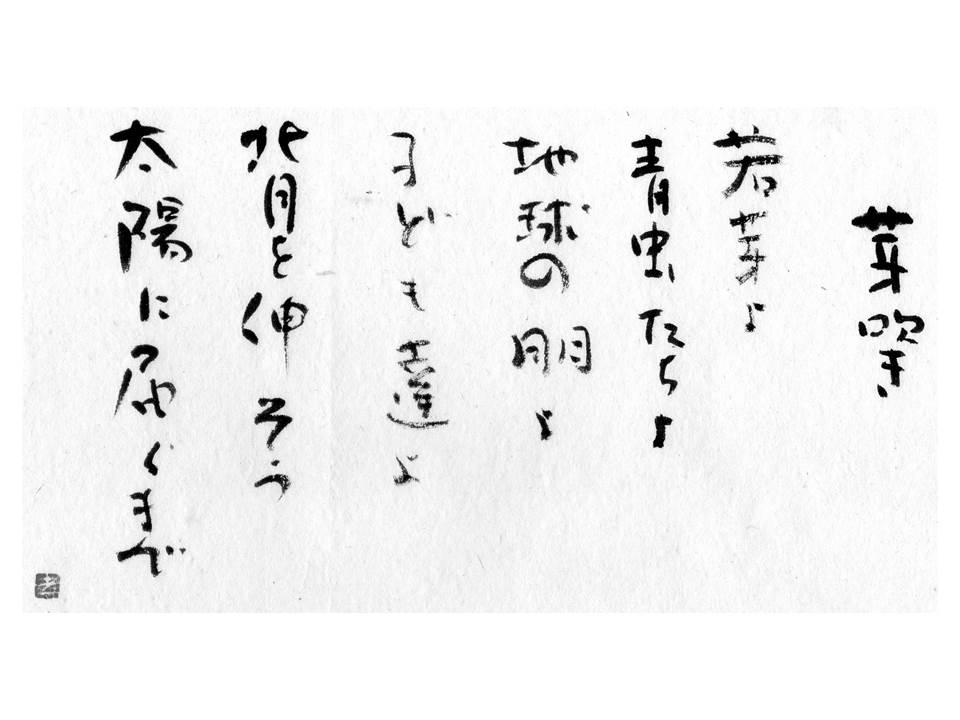 芽吹き
若芽よ
青虫たちよ
地球の朋よ
子ども達よ
背と伸そう
太陽に届くまで